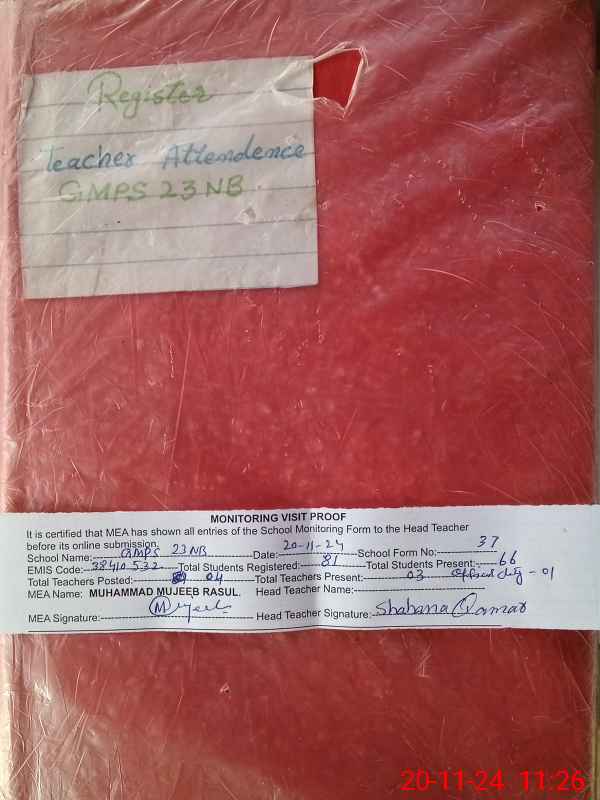 Register
Teacher Attendence
GMPS 23 NB
MONITORING VISIT PROOF
It is certified that MEA has shown all entries of the School Monitoring Form to the Head Teacher
before its online submission.
School Name: GMPS 23 NB Date: 20-11-24 School Form No: 37
EMIS Code: 38410532 Total Students Registered: 81 Total Students Present: 66
Total Teachers Posted: 04 Total Teachers Present: 03 official duty - 01
MEA Name: MUHAMMAD MUJEEB RASUL. Head Teacher Name:
MEA Signature: Mujeeb Head Teacher Signature: Shahana Qamar
20-11-24 11:26